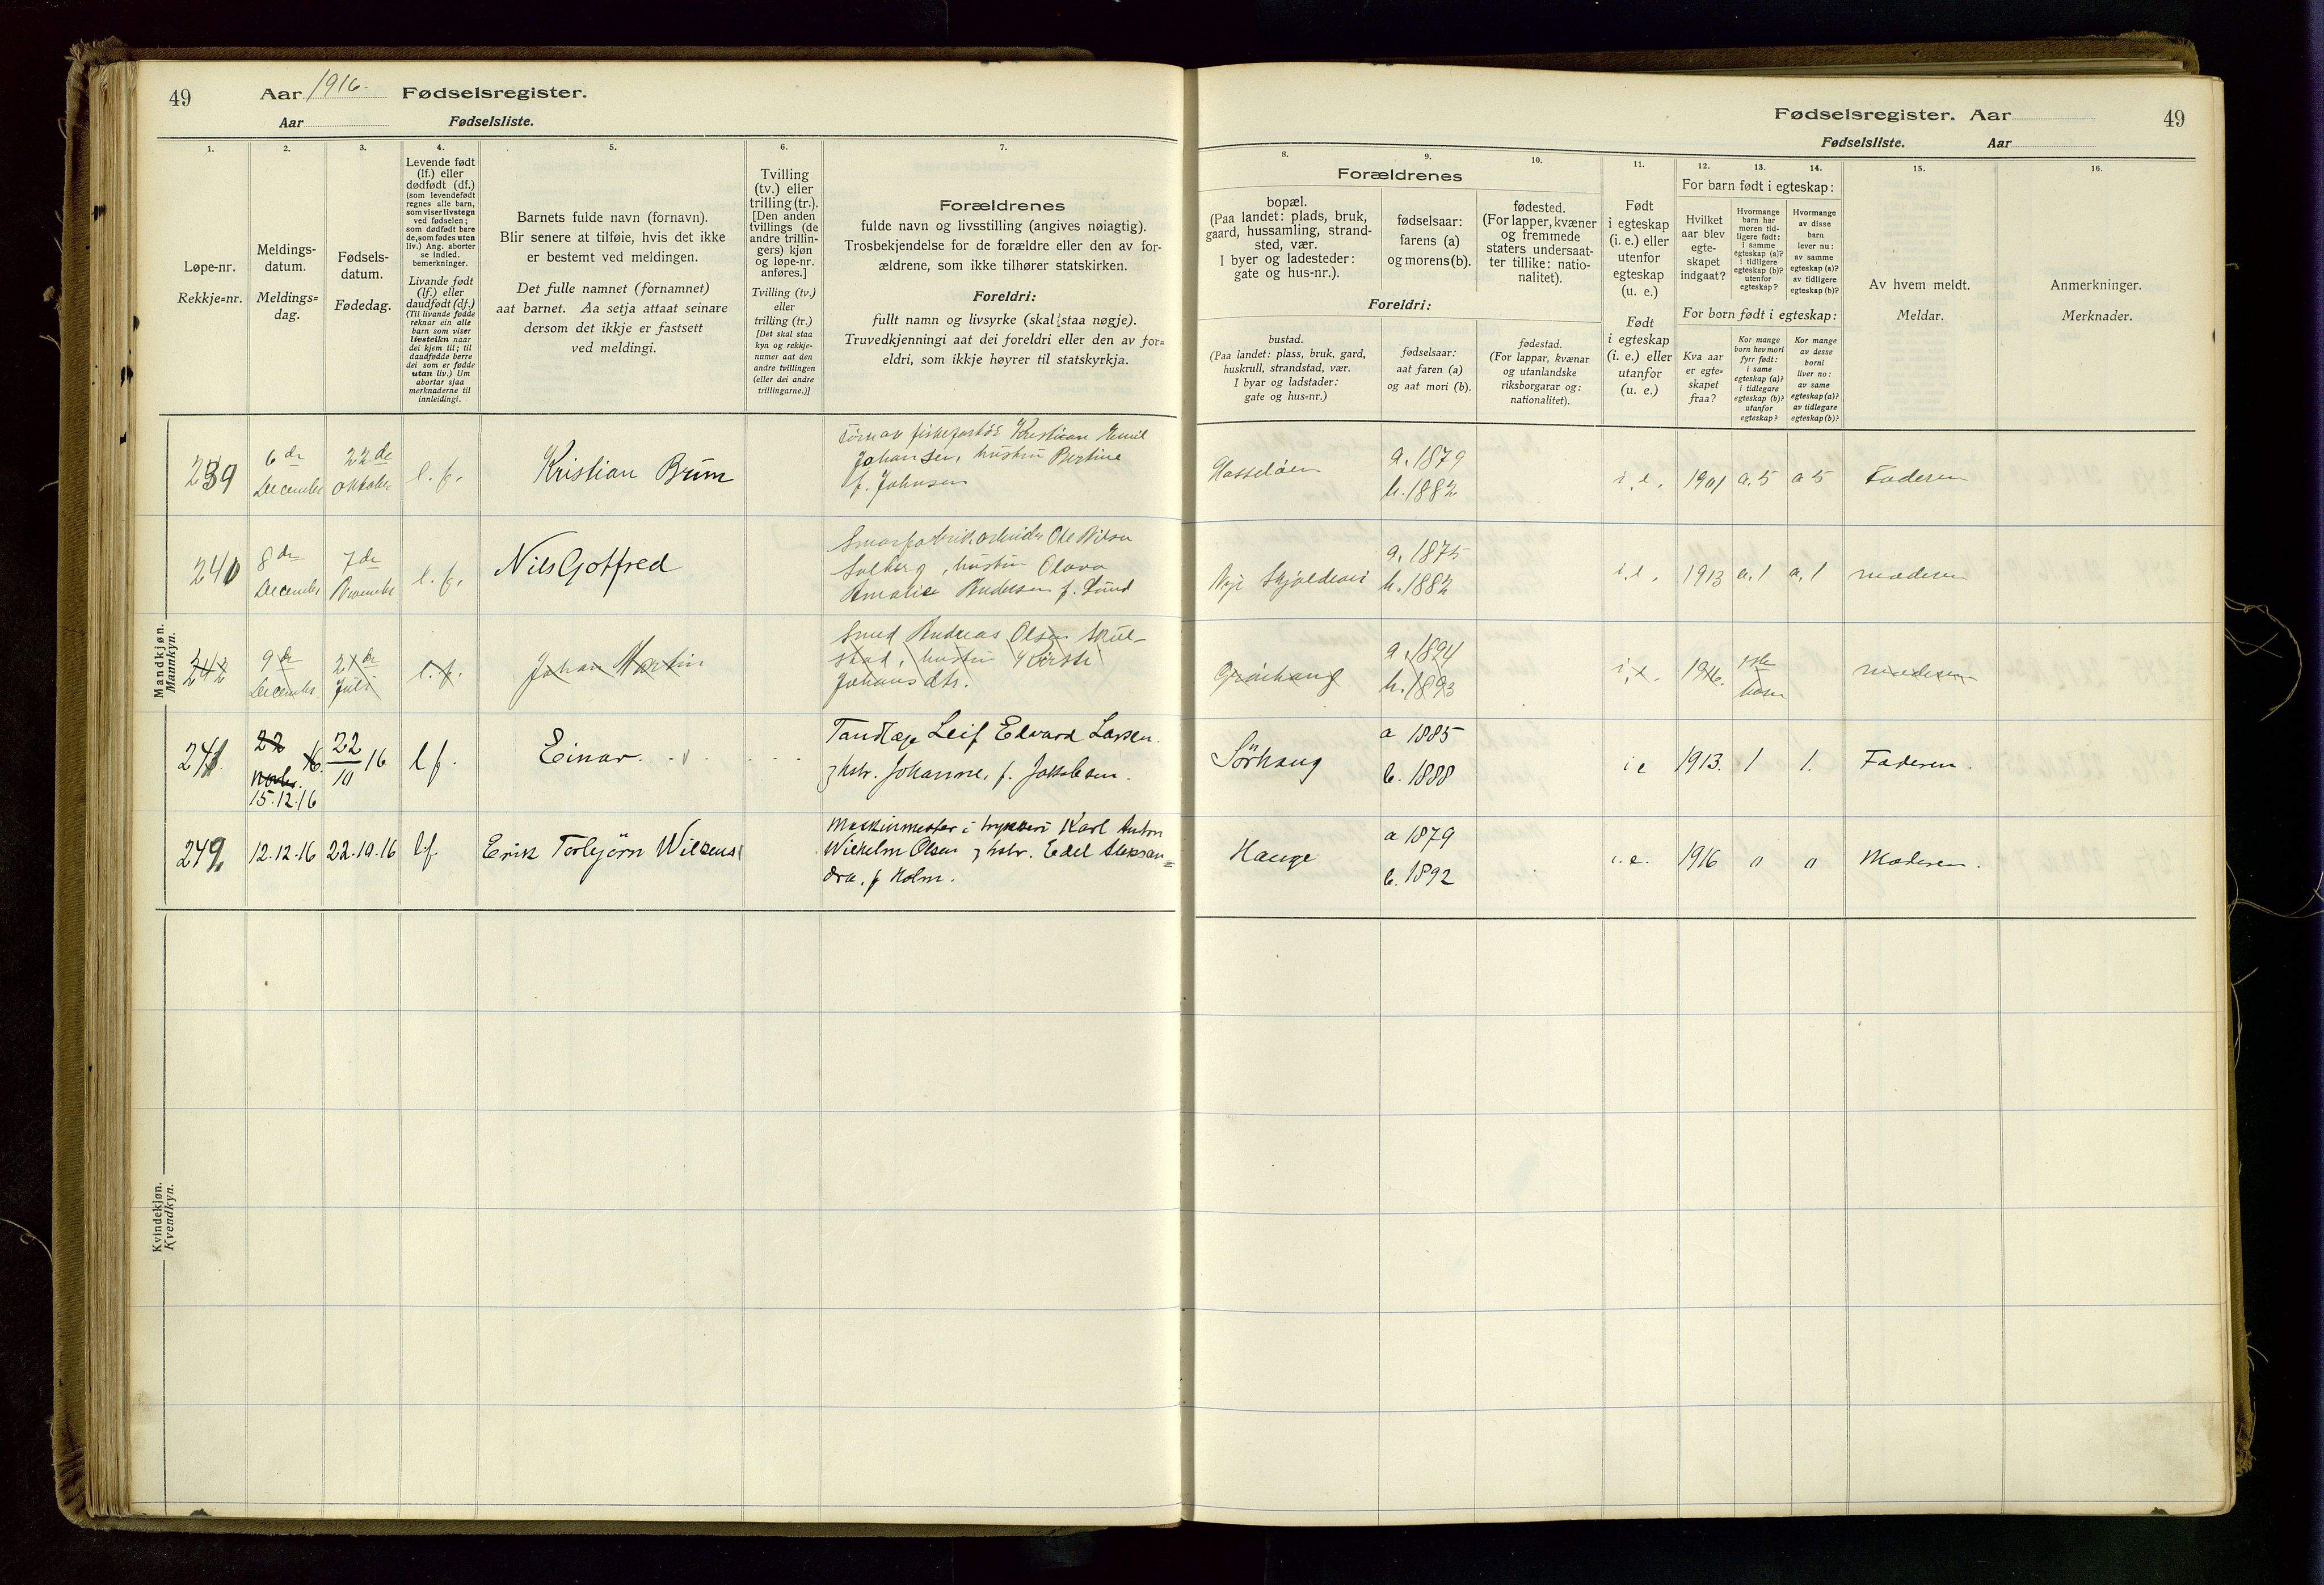 49 Aar 1916. Fødselsregister.
Aar Fødselsliste.
Fødselsregister. Aar 49
Fødselsliste. Aar
1. 2. 3. 4. 5. 6. 7.
Løpe-nr.
Rekkje=nr.
Meldings-
datum.
Meldings=
dag.
Fødsels-
datum.
Fødedag.
Levende født
(lf.) eller
dødfødt (df.)
(som levendefødt
regnes alle barn,
som viser livstegn
ved fødselen;
som dødfødt bare
de, som fødes uten
liv.) Ang. aborter
se indled.
bemerkninger.
Livande født
(lf.) eller
daudfødt (df.)
(Til livande fødde
reknar ein alle
barn som viser
livsteikn naar
dei kjem til; til
daudfødde berre
dei som er fødde
utan liv.) Um
abortar sjaa
merknaderne til
innleidingi.
Barnets fulde navn (fornavn).
Blir senere at tilføie, hvis det ikke
er bestemt ved meldingen.
Det fulle namnet (fornamnet)
aat barnet. Aa setja attaat seinare
dersom det ikkje er fastsett
ved meldingi.
Tvilling
(tv.) eller
trilling (tr.).
[Den anden
tvillings (de
andre trillin-
gers) kjøn
og løpe-nr.
anføres.]
Tvilling (tv.)
eller
trilling (tr.)
[Det skal staa
kyn og rekkje-
numer aat den
andre tvillingen
(eller dei andre
trillingarne.)]
Forældrenes
fulde navn og livsstilling (angives nøiagtig).
Trosbekjendelse for de forældre eller den av for-
ældrene, som ikke tilhører statskirken.
Foreldri:
fullt namn og livsyrke (skal staa nøgje).
Truvedkjenningi aat dei foreldri eller den av for=
eldri, som ikkje høyrer til statskyrkja.
8. 9. 10. 11. 12. 13. 14. 15. 16.
Forældrenes
bopæl.
(Paa landet: plads, bruk,
gaard, hussamling, strand-
sted, vær.
I byer og ladesteder:
gate og hus-nr.).
fødselsaar:
farens (a)
og morens (b).
fødested.
(For lapper, kvæner
og fremmede
staters undersaat-
ter tillike: natio-
nalitet).
Foreldri:
bustad.
(Paa landet: plass, bruk, gard,
huskrull, strandstad, vær.
I byar og ladstader:
gate og hus=nr.)
fødselsaar:
aat faren (a)
og aat mori (b).
fødestad.
(For lappar, kvænar
og utanlandske
riksborgarar og:
nationalitet).
Født
i egteskap
(i. e.) eller
utenfor
egteskap
(u. e.)
Født
i egteskap
(i. e.) eller
utanfor
(u. e.)
For barn født i egteskap:
Hvilket
aar blev
egte-
skapet
indgaat?
Hvormange
barn har
moren tid-
ligere født:
i samme
egteskap (a)?
i tidligere
egteskap (b)?
utenfor
egteskap?
Hvormange
av disse
barn
lever nu:
av samme
egteskap (a)?
av tidligere
egteskap (b)?
For born født i egteskap:
Kva aar
er egte=
skapet
fraa?
Kor mange
born hev mori
fyrr født:
i same
egteskap (a)?
i tidlegare
egteskap (b)?
utanfor
egteskap?
Kor mange
av desse
borni
liver no:
av same
egteskap (a)?
av tidlegare
egteskap (b)?
Av hvem meldt.
Meldar.
Anmerkninger.
Merknader.
Mandkjøn.
Mannkyn.
239 6 de December 22 de Oktober l. f. Kristian Brun
Kristian Emil
Johansen, hustru Bertine
f. Johnsen
Hasseløen a. 1879 b. 1882 i. e. 1901 a. 5 a 5 Faderen
240 8 de December 7 de November l. f. Nils Gotfred
Ole Nilsen
Solberg, hustru Olava
Amalie Andersen f. Lund
a. 1875 b. 1882 i. e. 1913 a. 1 a. 1 moderen
242 9 de December 21 de Juli l. f. Johan Martin
Smed Andreas Olsen Skul-
stad, hustru Kirsti
Johansdtr.
Grønhaug a. 1894 b. 1893 i. e. 1916. 1ste barn moderen
241. 22 Novbr. 16. 15.12.16 22/10 16 l f. Einar.
Tandlæge Leif Edvard Larsen.
og hstr. Johanne, f. Jakobsen.
Sörhaug a 1885 b. 1888 i e 1913. 1 1. Faderen.
242 12.12.16 22.10.16 l.f. Erik Torbjörn
Maskinmester i trykkeri Karl Anton
Wilhelm Olsen og hstr. Edel Aleksan=
dra, f Holm.
Hauge a 1879 b. 1892 i. e. 1916 0 0 Moderen.
Kvindekjøn.
Kvendkyn.